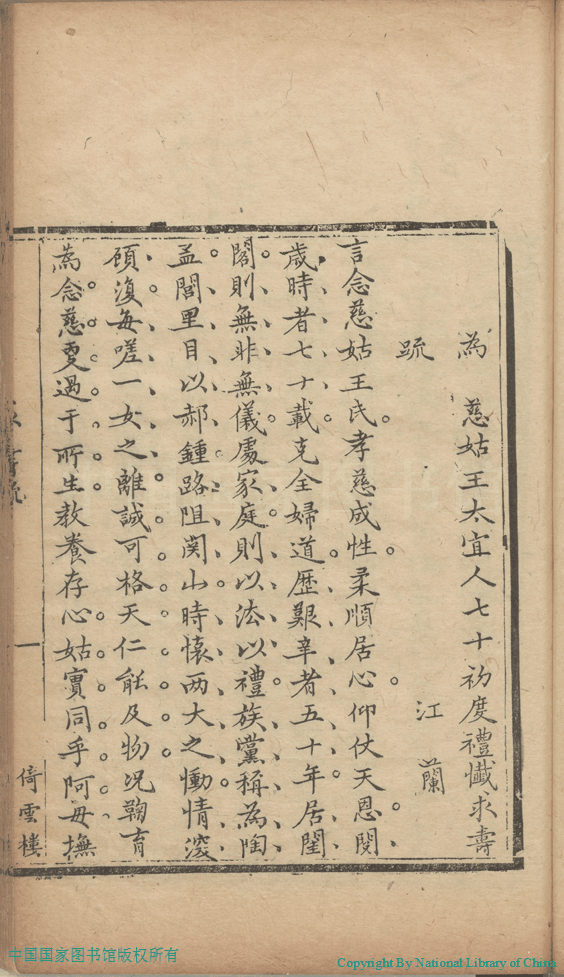 為　慈姑王太宜人七十初度禮懺求壽
疏
江蘭
言念慈姑王氏孝慈成性柔順居心仰仗天恩閱
歲時者七十載克全婦道歷艱辛者五十年居閨
閣則無非無儀處家庭則以法以禮族黨稱為陶
孟閭里目以郝鍾路阻関山時懷两大之慟情深
顧復每嗟一女之離誠可格天仁能及物况鞠育
為念慈更過于所生教養存心姑實同乎阿母撫
一
倚雲樓
中国国家图书馆版权所有
Copyright By National Library of China